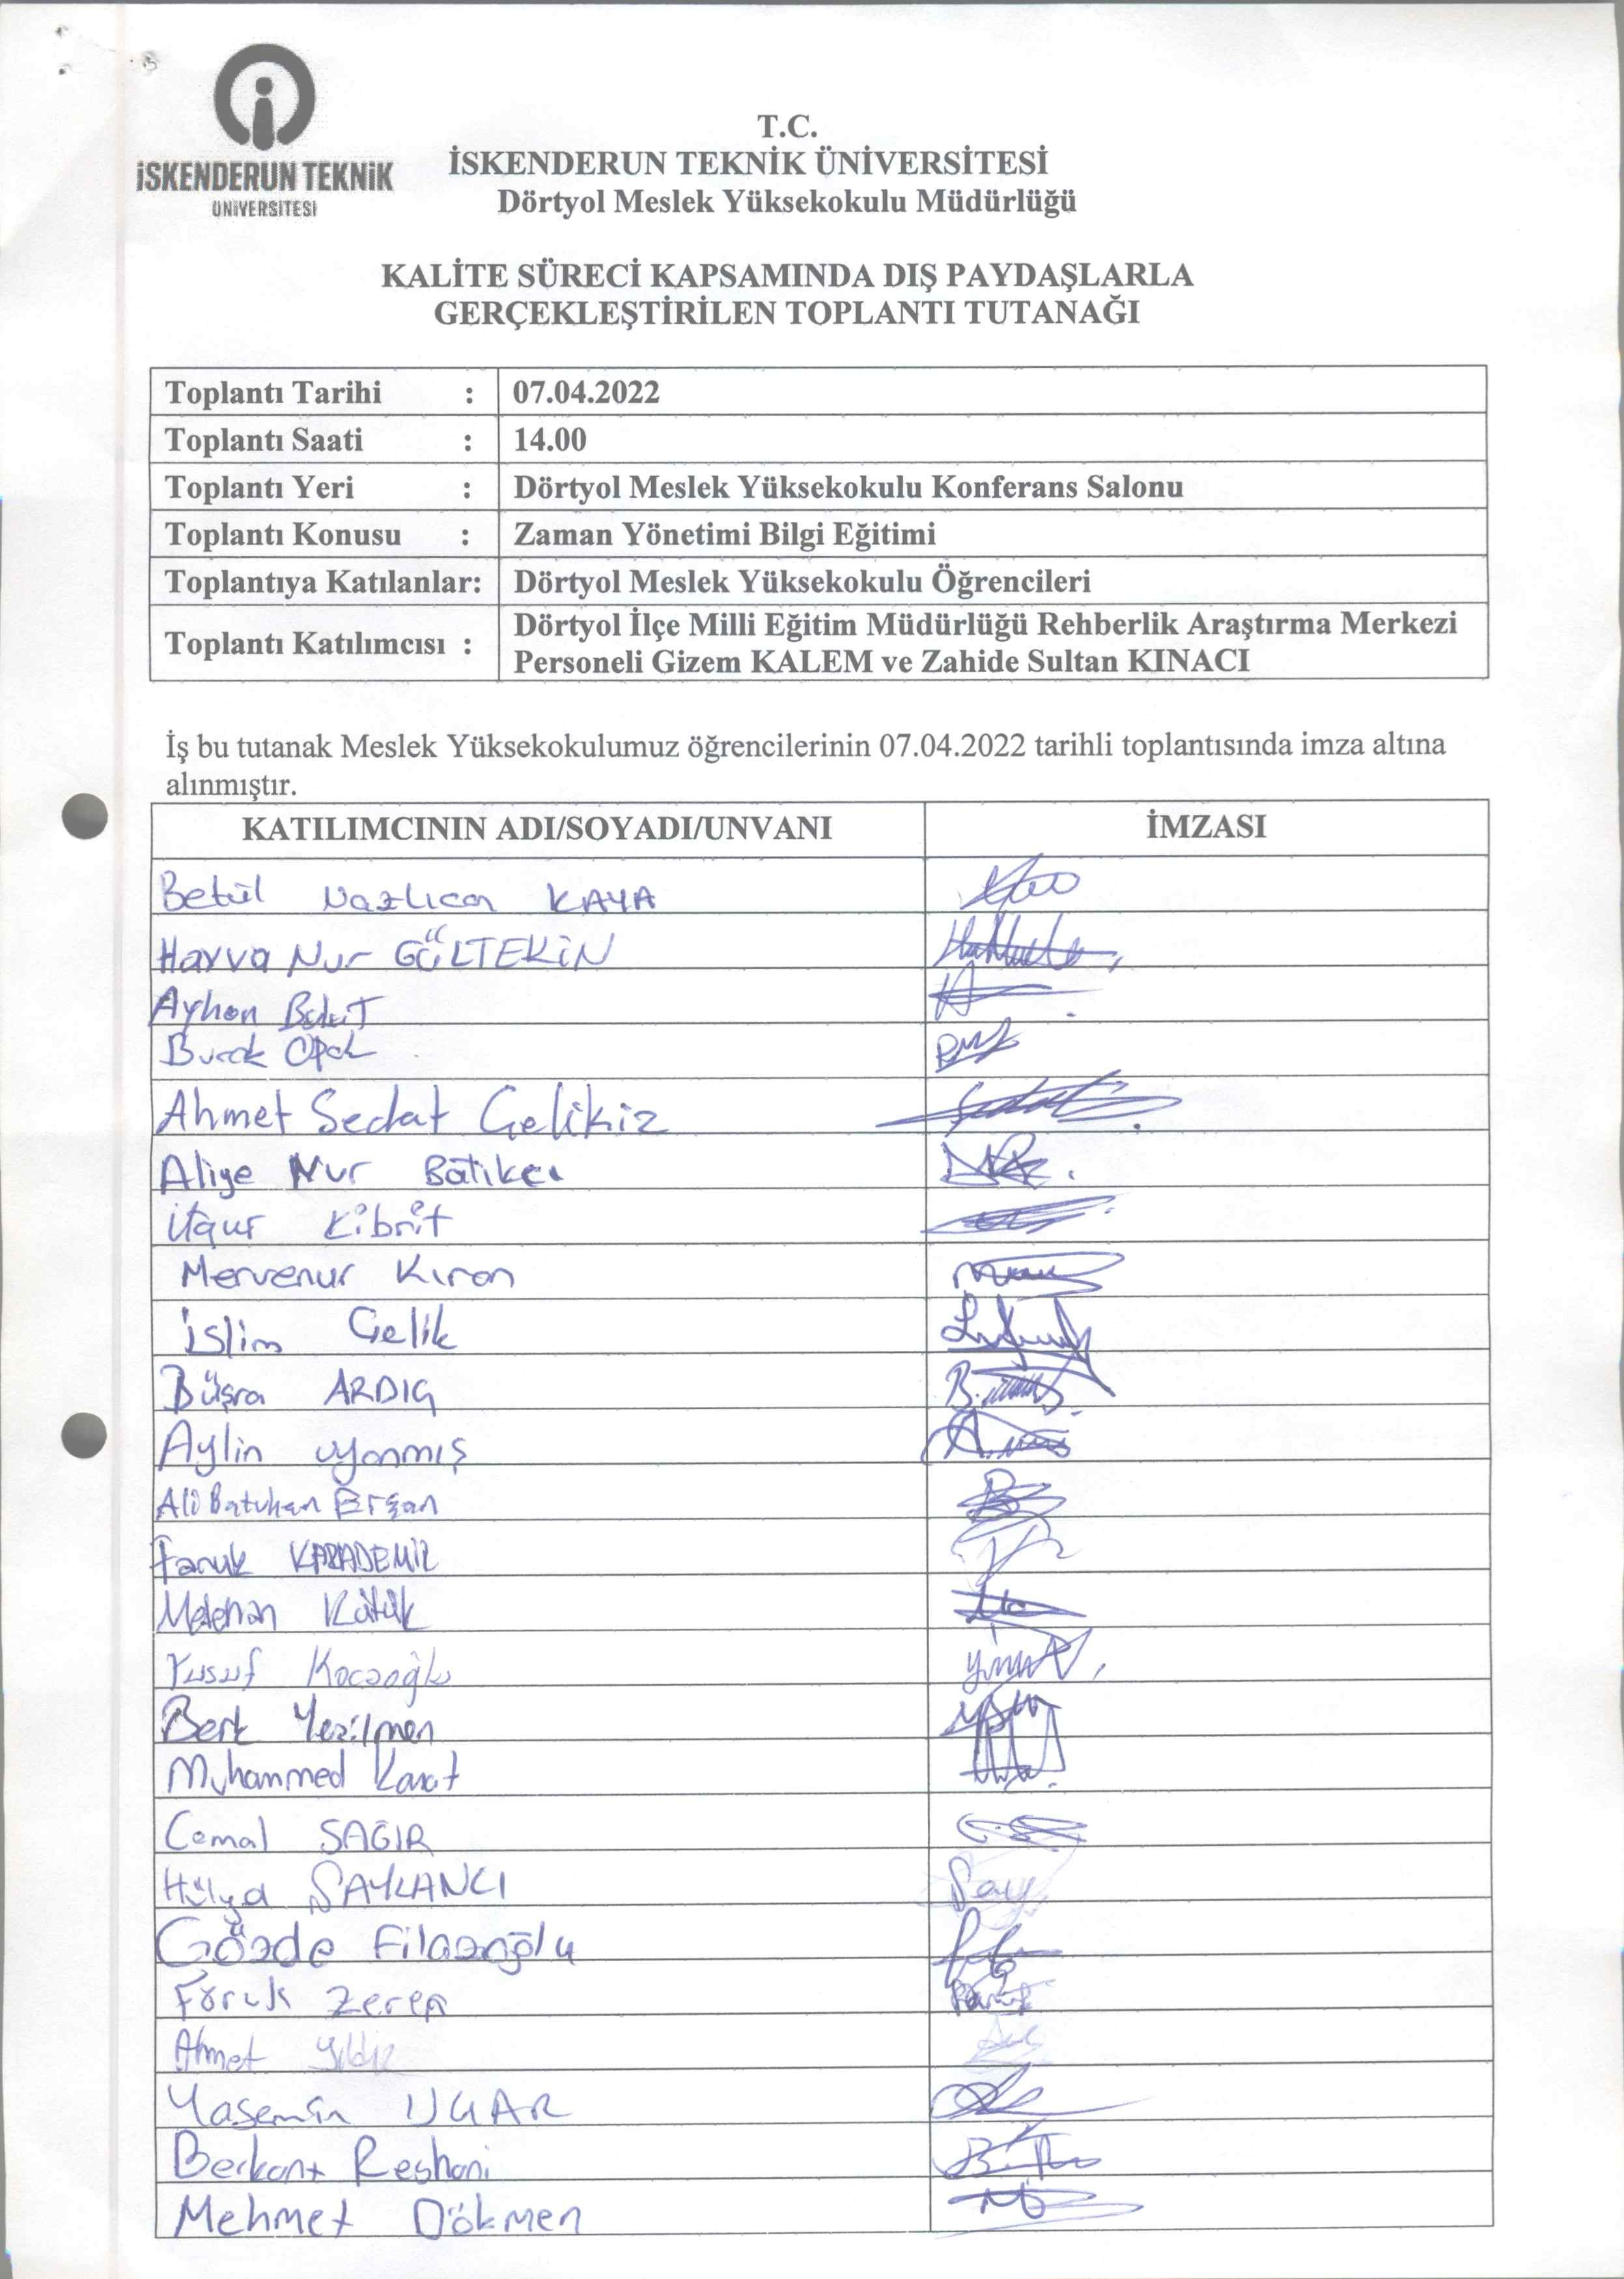 İSKENDERUN TEKNİK
ÜNİVERSİTESİ
T.C.
İSKENDERUN TEKNİK ÜNİVERSİTESİ
Dörtyol Meslek Yüksekokulu Müdürlüğü
KALİTE SÜRECİ KAPSAMINDA DIŞ PAYDAŞLARLA
GERÇEKLEŞTİRİLEN TOPLANTI TUTANAĞI
Toplantı Tarihi : 07.04.2022
Toplantı Saati : 14.00
Toplantı Yeri : Dörtyol Meslek Yüksekokulu Konferans Salonu
Toplantı Konusu : Zaman Yönetimi Bilgi Eğitimi
Toplantıya Katılanlar: Dörtyol Meslek Yüksekokulu Öğrencileri
Toplantı Katılımcısı : Dörtyol İlçe Milli Eğitim Müdürlüğü Rehberlik Araştırma Merkezi
Personeli Gizem KALEM ve Zahide Sultan KINACI
İş bu tutanak Meslek Yüksekokulumuz öğrencilerinin 07.04.2022 tarihli toplantısında imza altına
alınmıştır.
KATILIMCININ ADI/SOYADI/UNVANI İMZASI
Betül Nazlıcan KAYA
Havva Nur GÜLTEKİN
Ayhan Bulut
Burak
Ahmet Sedat Çelikiz
Aliye Nur Batıkcı
Kibrit
Mervenur Kıran
İslim Çelik
Büşra ARDIÇ
Aylin uyanmış
Ali Batuhan Erşan
Faruk KARADEMİR
Metehan Kütük
Yusuf Kocaoğlu
Berk Yezilmen
Muhammed Karat
Cemal SAĞIR
Hülya SAYLANCI
Gözde Filazoğlu
Faruk Zeren
Ahmet Yıldız
Yasemin UÇAR
Berkant Reshani
Mehmet Dökmen